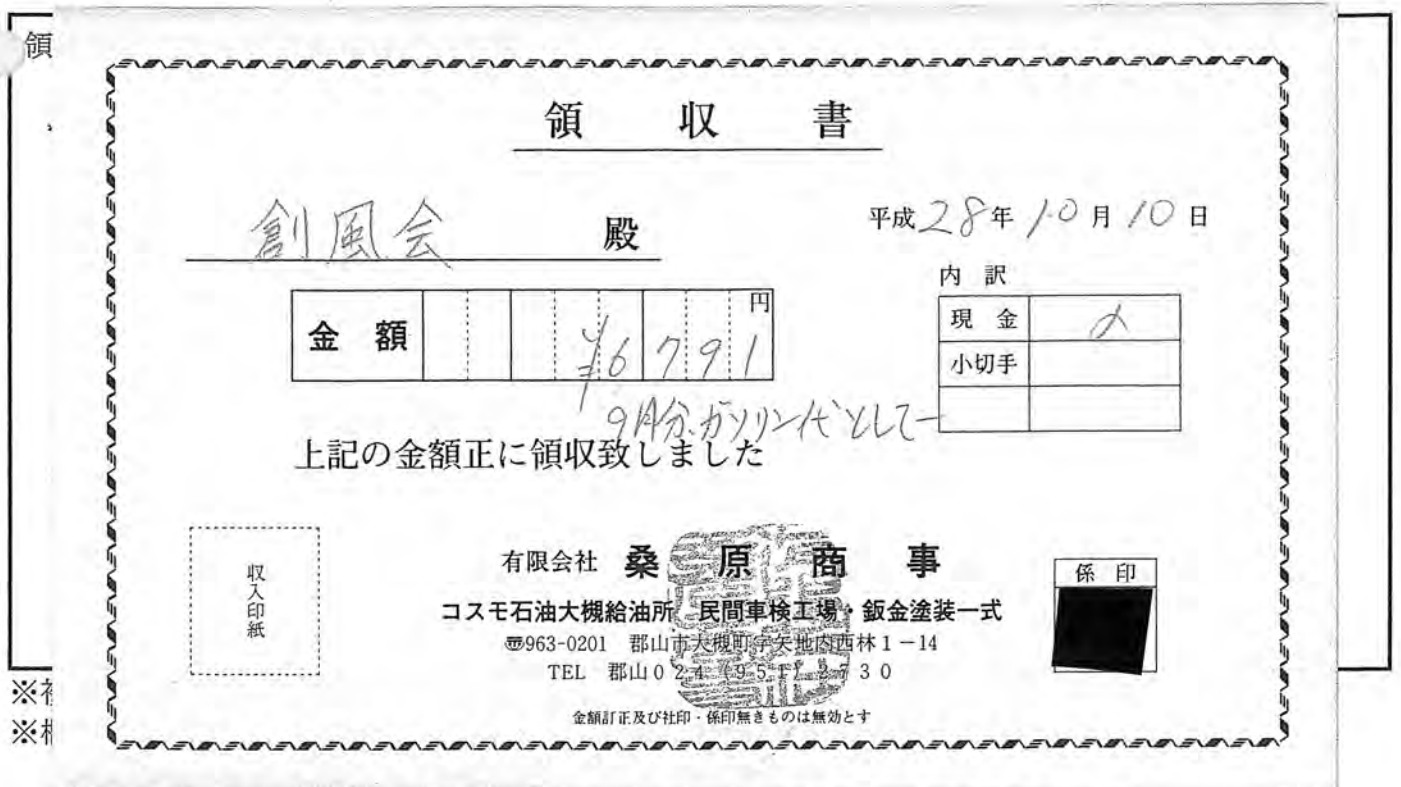 領
領収書
創風会 殿
平成28年10月10日
内訳
金額 ¥6791円
現金
小切手
9月分ガソリン代として
上記の金額正に領収致しました
収入印紙
有限会社 桑原商事
コスモ石油大槻給油所 民間車検工場・鈑金塗装一式
〒963-0201 郡山市大槻町字矢地内西林1-14
TEL 郡山024(951)2730
金額訂正及び社印・係印無きものは無効とす
係印
※
※